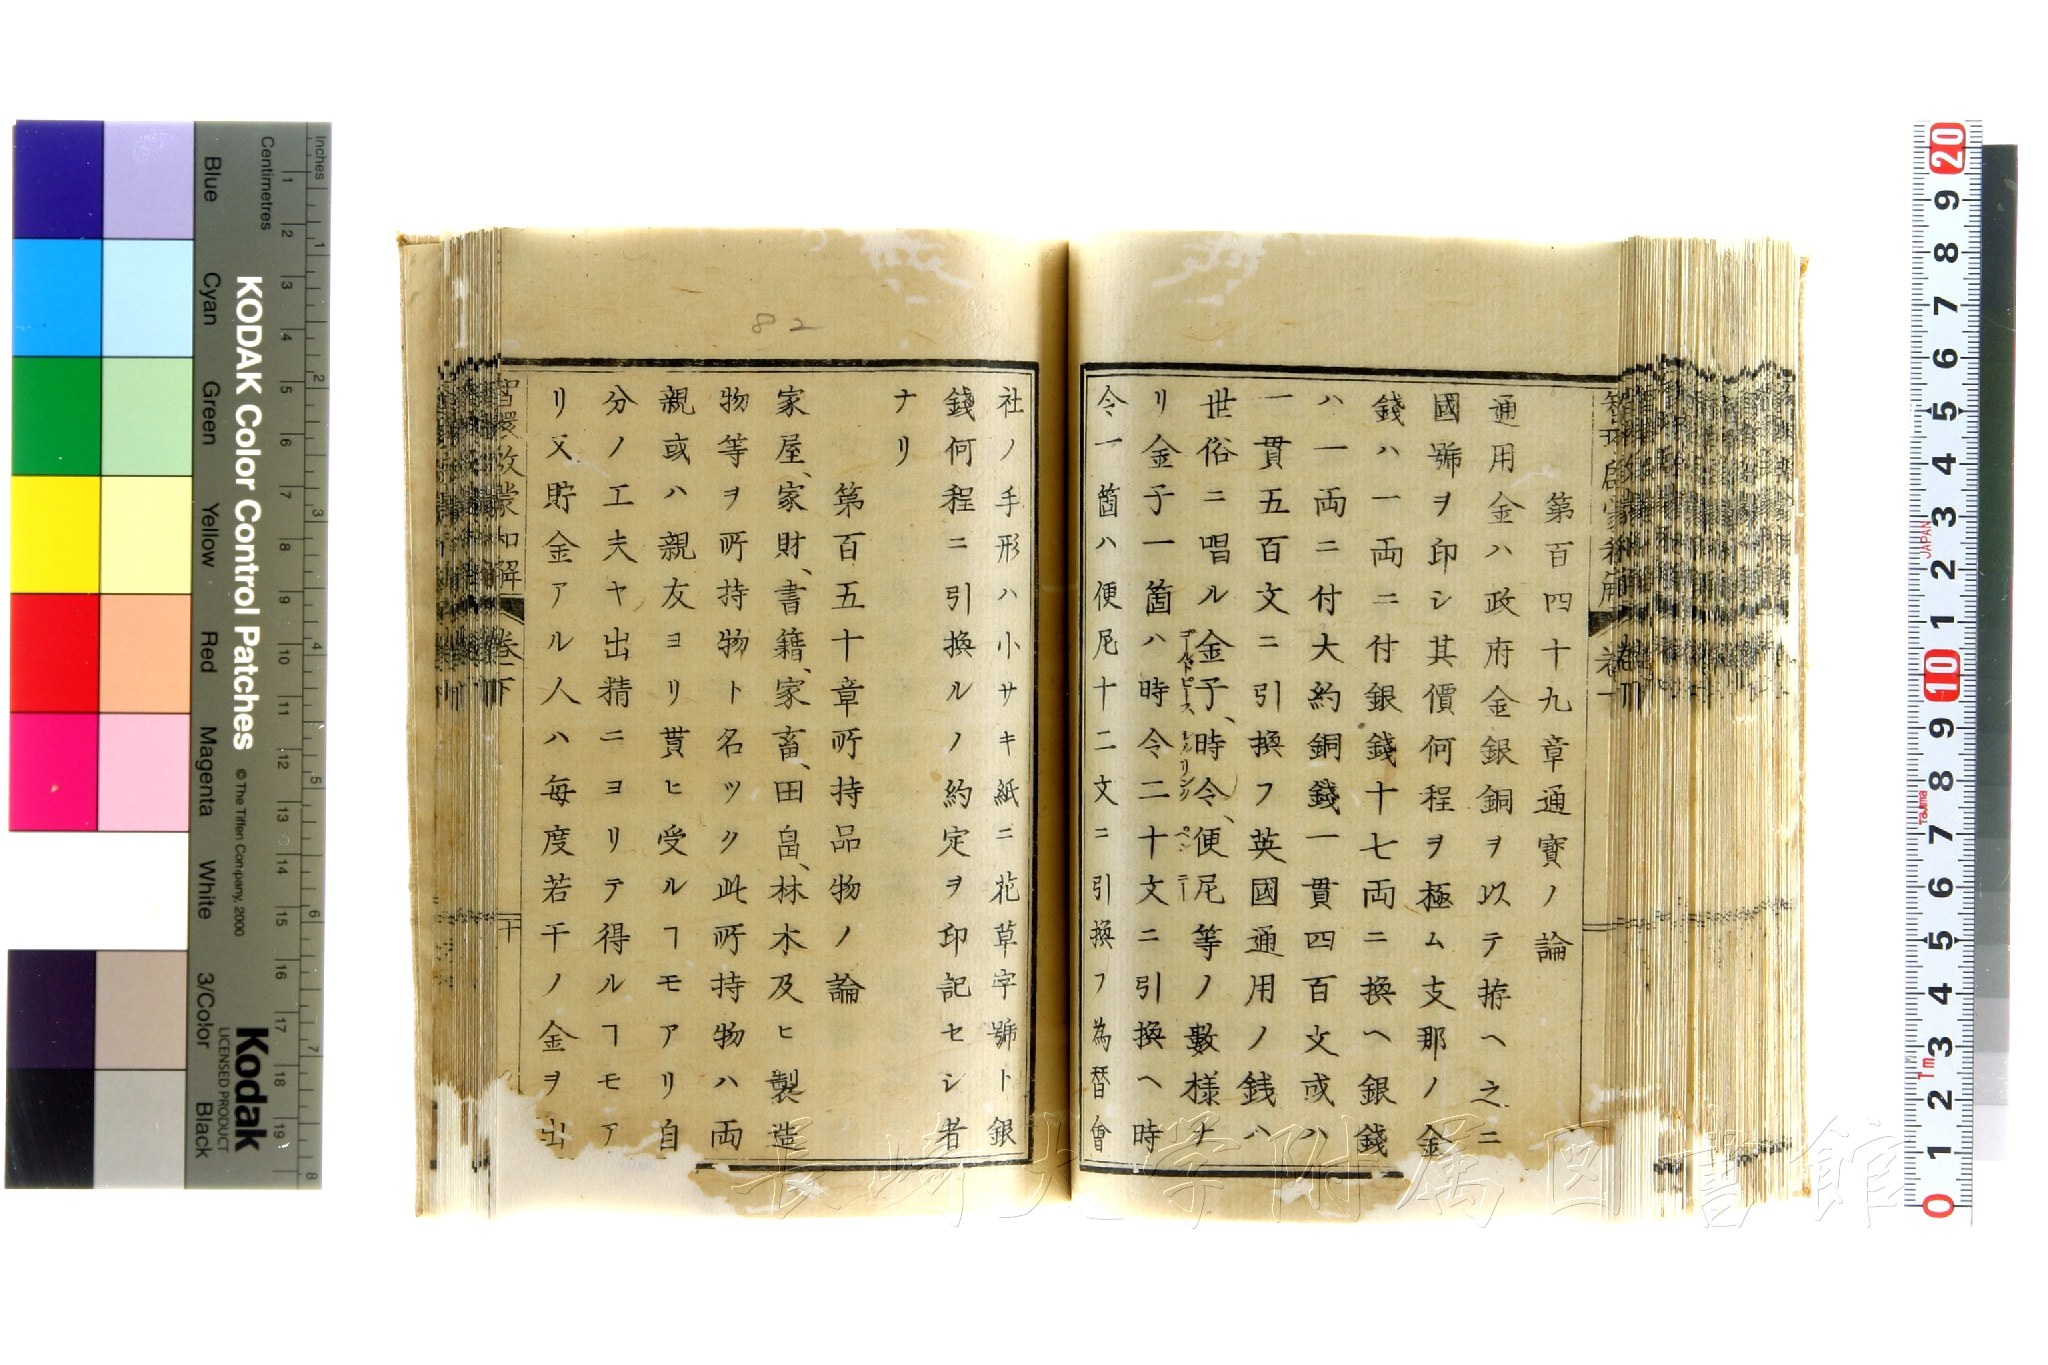 第百四十九章通寳ノ論
通用金ハ政府金銀銅ヲ以テ拵ヘ之ニ
國號ヲ印シ其價何程ヲ極ム支那ノ金
錢ハ一両ニ付銀錢十七両ニ換ヘ銀錢
ハ一両ニ付大約銅錢一貫四百文或ハ
一貫五百文ニ引換フ英國通用ノ銭ハ
世俗ニ唱ル金子、時令、便尼等ノ數様ナ
ゴールドピース シルリング ペンニー
リ金子一箇ハ時令二十文ニ引換ヘ時
令一箇ハ便尼十二文ニ引換フ為替會
社ノ手形ハ小サキ紙ニ花草字號ト銀
錢何程ニ引換ルノ約定ヲ印記セシ者
ナリ
第百五十章所持品物ノ論
家屋、家財、書籍、家畜、田畠、林木及ヒ製造
物等ヲ所持物ト名ツク此所持物ハ両
親或ハ親友ヨリ貰ヒ受ルヿモアリ自
分ノ工夫ヤ出精ニヨリテ得ルヿモア
リ又貯金アル人ハ毎度若干ノ金ヲ出
智環啓蒙和解 卷下 十
82
長崎大学附属図書館
KODAK Color Control Patches
© The Tiffen Company, 2000
Kodak
LICENSED PRODUCT
Inches
Centimetres
Blue Cyan Green Yellow Red Magenta White 3/Color Black
1 2 3 4 5 6 7 8 9 10 11 12 13 14 15 16 17 18 19
1 2 3 4 5 6 7 8
20 9 8 7 6 5 4 3 2 1 10 9 8 7 6 5 4 3 2 1 0
JAPAN
Tajima